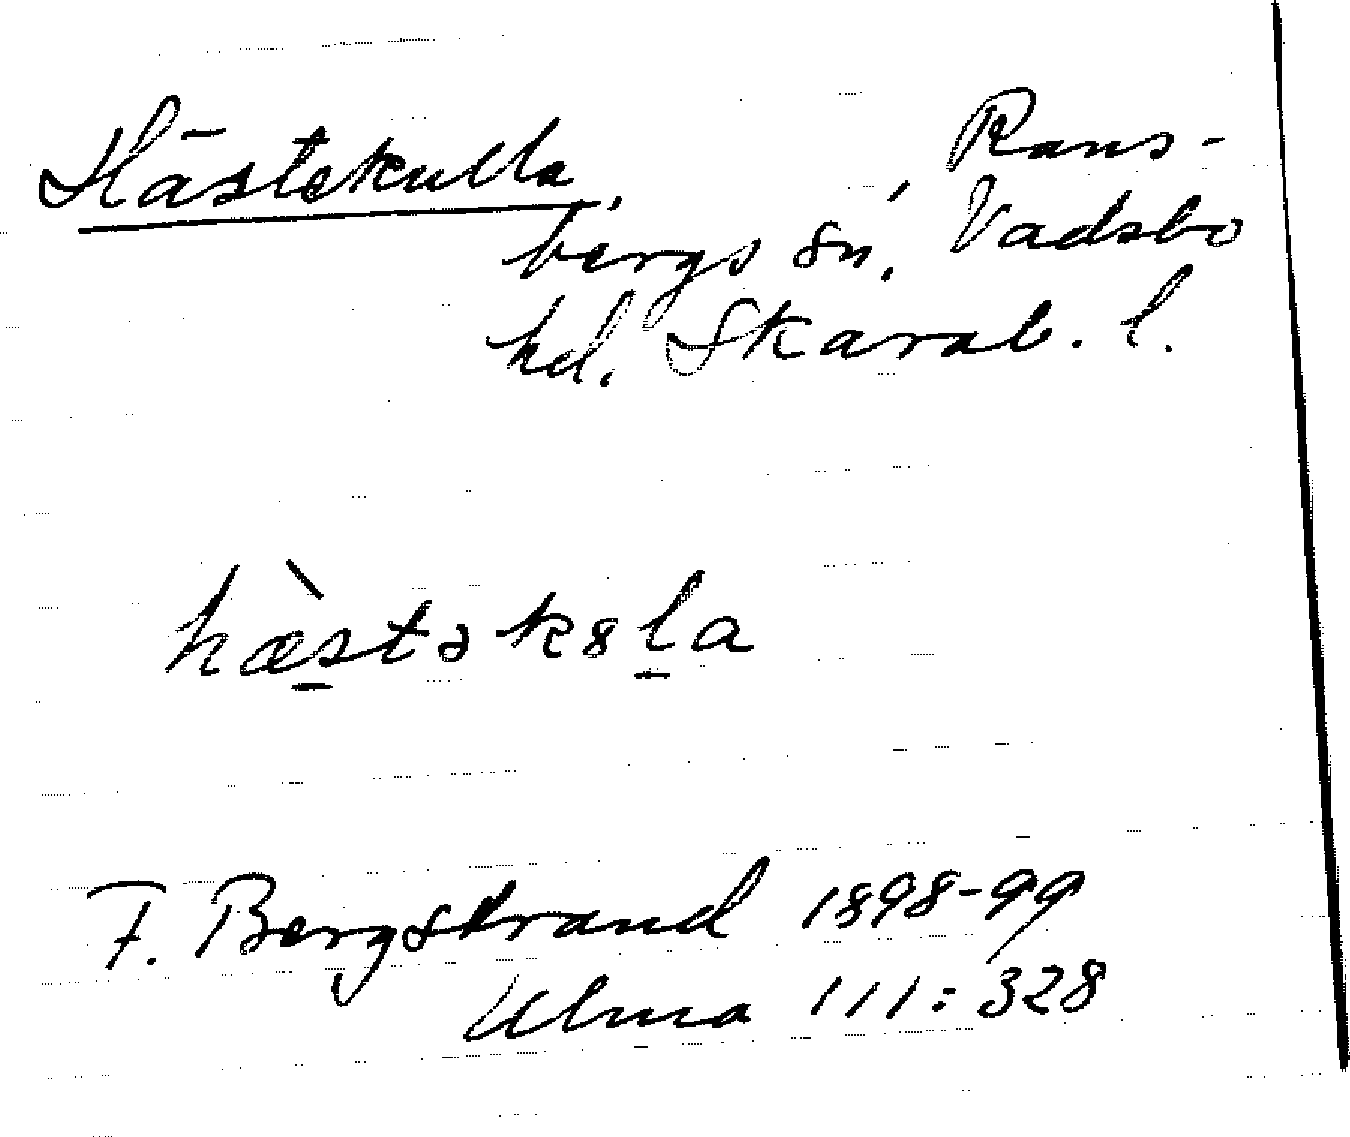 Hästekulla, Rans-
bergs sn, Vadsbo
hd. Skarab. l.
hæ̀s̠təkȣl̠a
F. Bergstrand 1898-99
Ulma 111:328